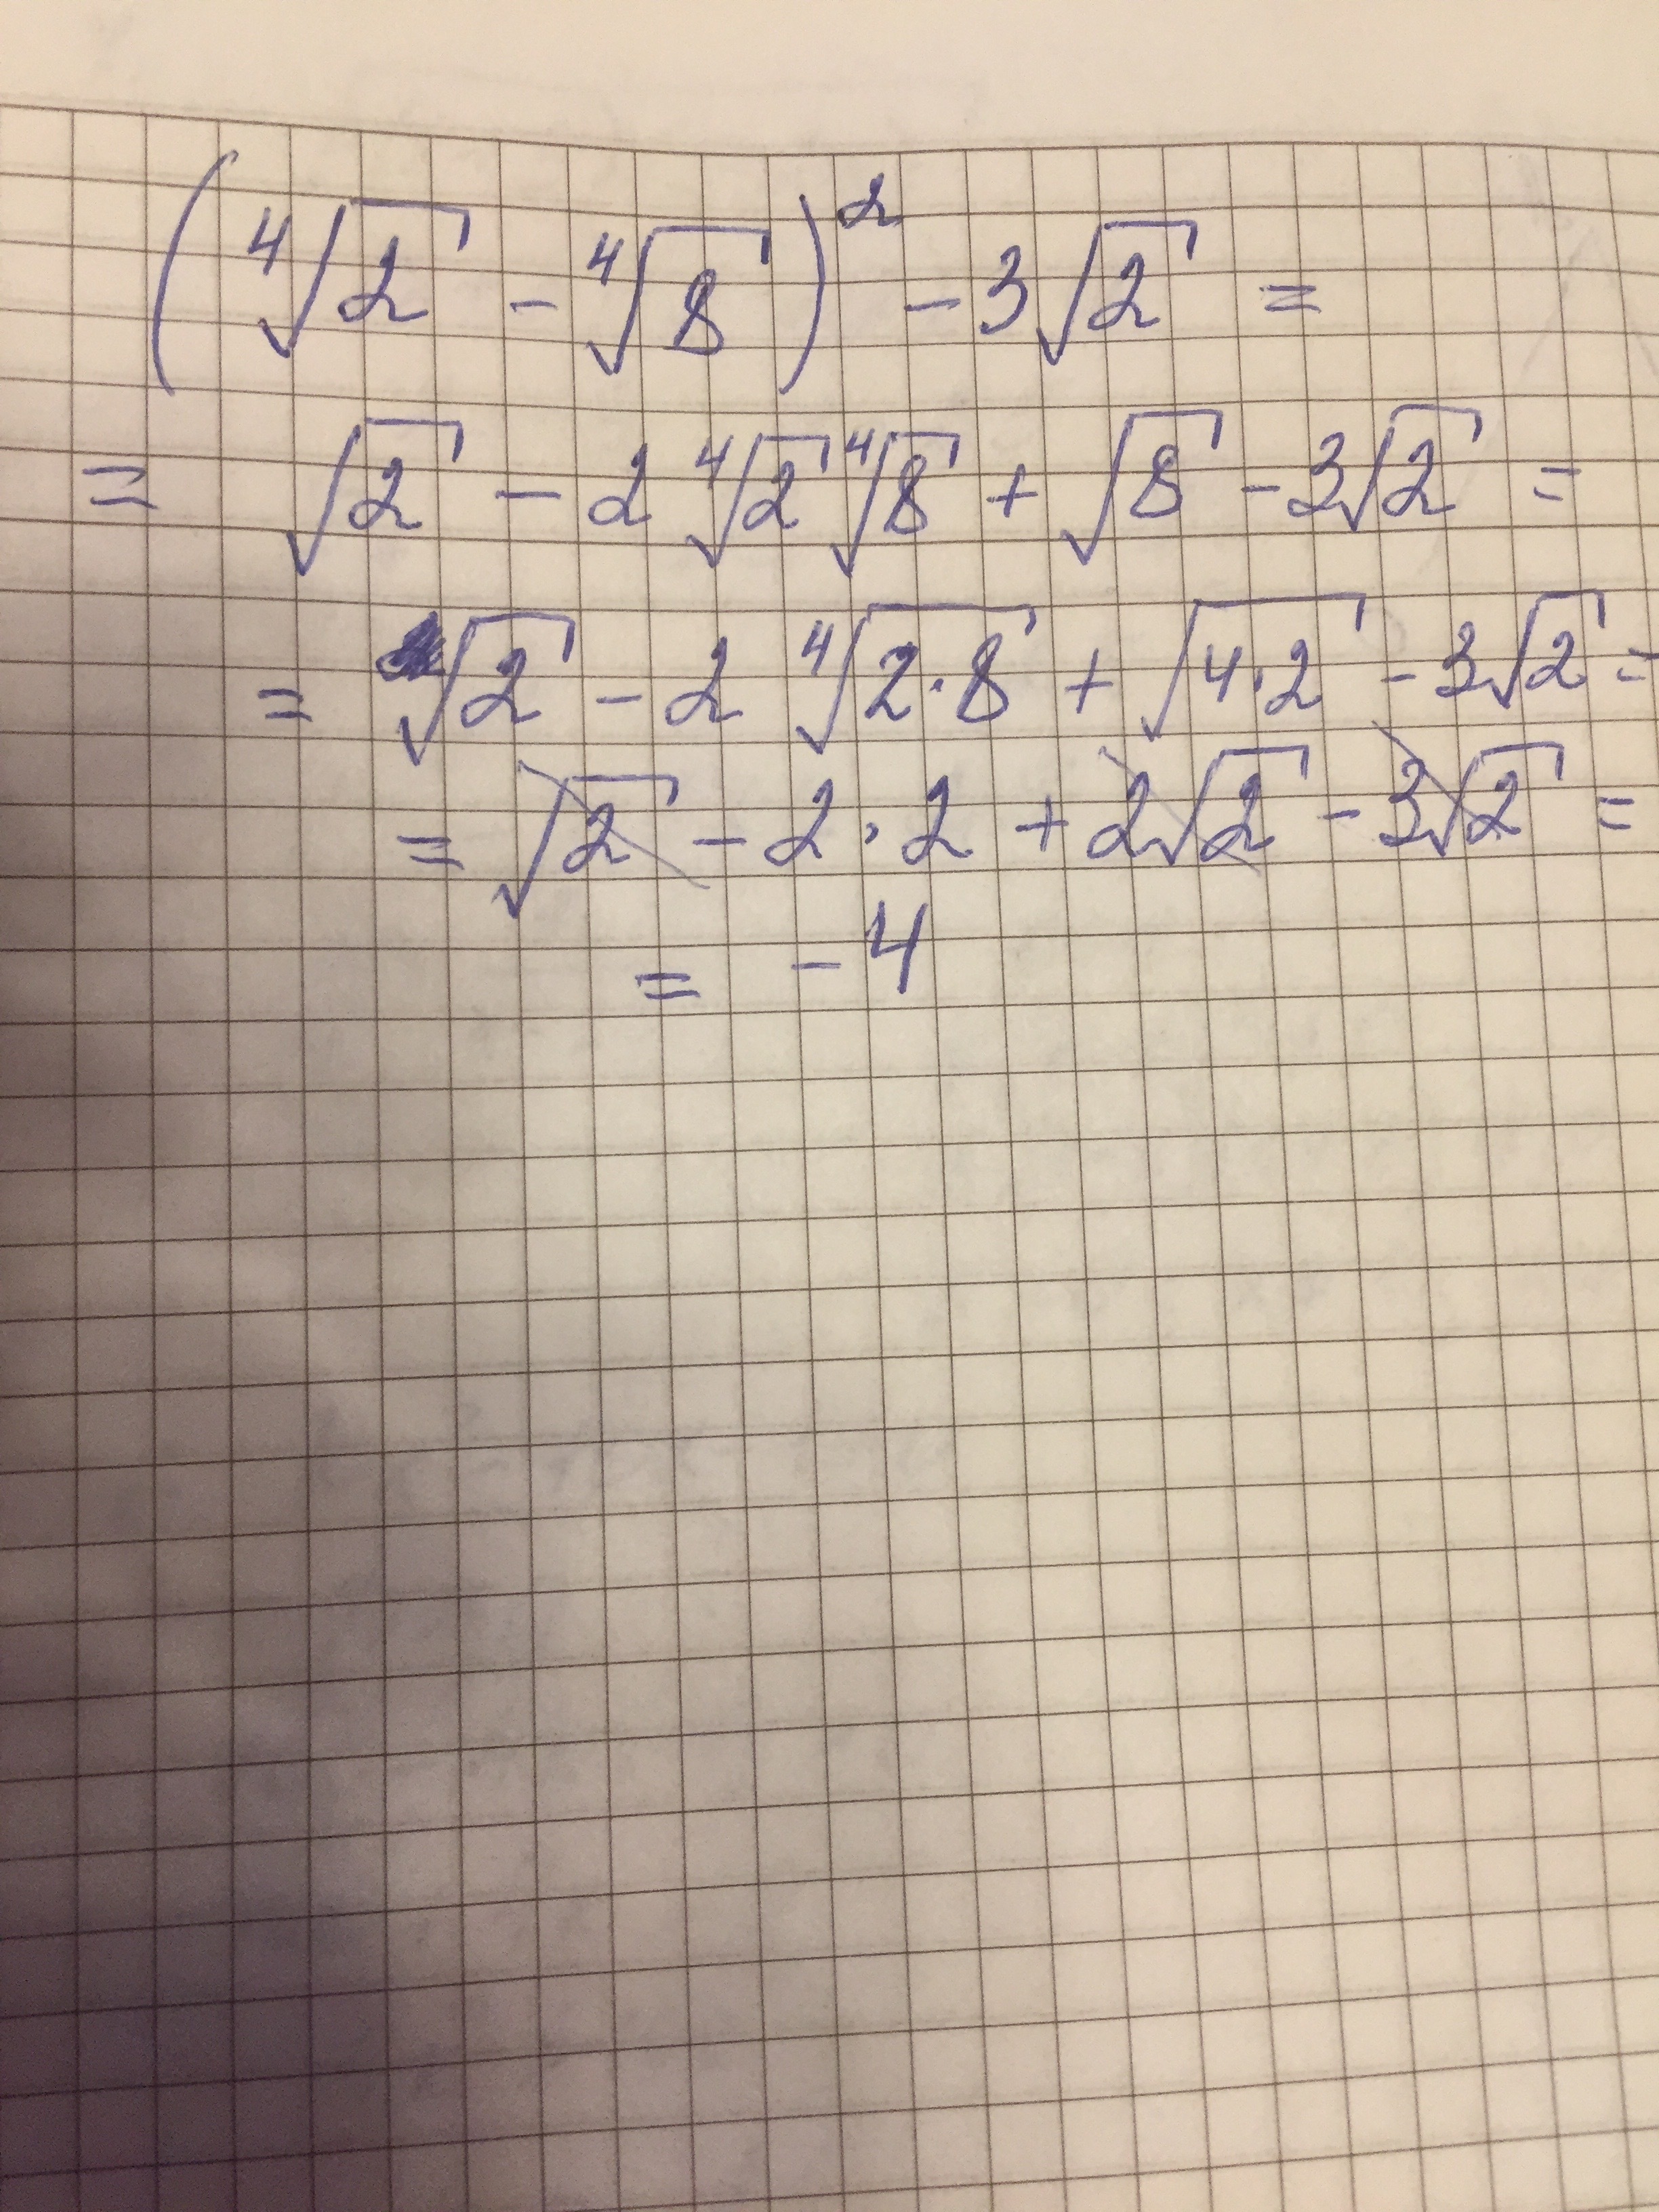 (∜2 - ∜8)² - 3√2 =
= √2 - 2 ∜2 ∜8 + √8 - 3√2 =
= √2 - 2 ∜(2·8) + √(4·2) - 3√2 =
= √2 - 2·2 + 2√2 - 3√2 =
= -4